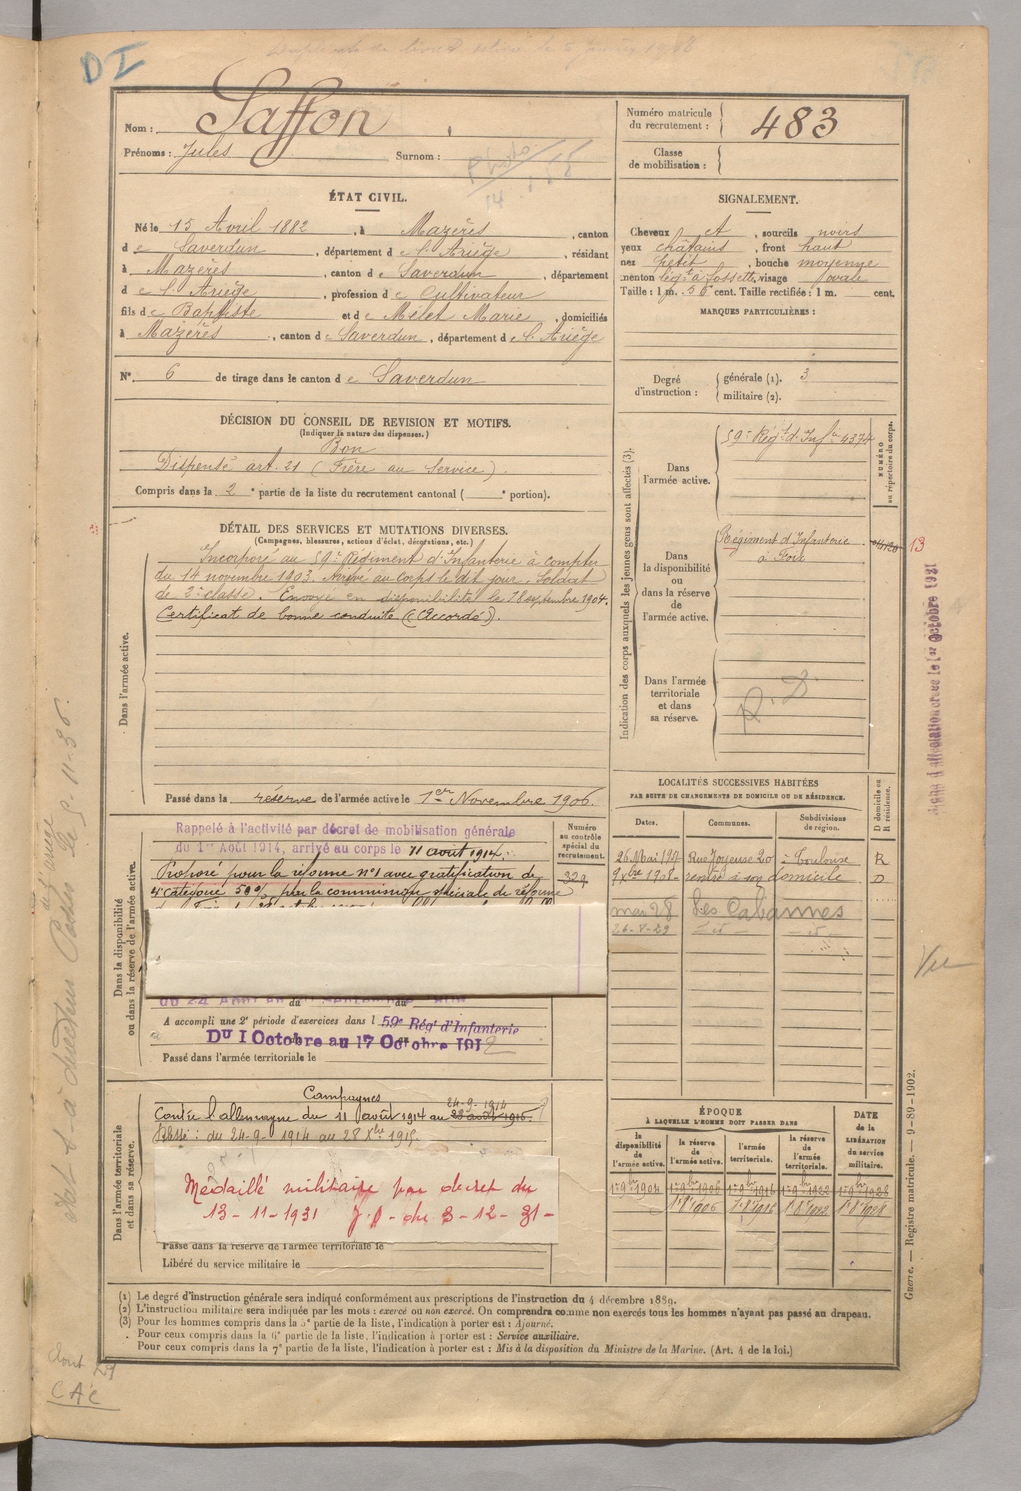 DI
Nom : Saffon
Prénoms : Jules Surnom :
Numéro matricule du recrutement : 483
Classe de mobilisation :
ÉTAT CIVIL.
Né le 15 Avril 1882, à Mazères, canton
de Saverdun, département de l'Ariège, résidant
à Mazères, canton de Saverdun, département
de l'Ariège, profession de Cultivateur
fils de Baptiste et de Melet Marie, domiciliés
à Mazères, canton de Saverdun, département de l'Ariège
N° 6 de tirage dans le canton de Saverdun
SIGNALEMENT.
Cheveux et, sourcils noirs
yeux châtains, front haut
nez petit, bouche moyenne
menton à fossette, visage ovale
Taille : 1 m. cent. Taille rectifiée : 1 m. cent.
MARQUES PARTICULIÈRES :
Degré d'instruction : générale (1). 3
militaire (2).
DÉCISION DU CONSEIL DE REVISION ET MOTIFS.
(Indiquer la nature des dispenses.)
Bon
Dispensé art. 21 (Frère au Service)
Compris dans la 2e partie de la liste du recrutement cantonal ( e portion).
DÉTAIL DES SERVICES ET MUTATIONS DIVERSES.
(Campagnes, blessures, actions d'éclat, décorations, etc.)
Dans l'armée active.
Incorporé au 59e Régiment d'Infanterie à compter
du 14 novembre 1903. Arrivé au corps le dit jour. Soldat
de 2e classe. Envoyé en disponibilité le 18 septembre 1904.
Certificat de bonne conduite (Accordé).
Passé dans la réserve de l'armée active le 1er Novembre 1906.
Indication des corps auxquels les jeunes gens sont affectés (3).
NUMÉRO au répertoire du corps.
Dans l'armée active.
59e Régt d'Infie 4374
Dans la disponibilité ou dans la réserve de l'armée active.
Régiment d'Infanterie
à Foix
13
Dans l'armée territoriale et dans sa réserve.
R. D.
1er Octobre 1921
LOCALITÉS SUCCESSIVES HABITÉES
PAR SUITE DE CHANGEMENTS DE DOMICILE OU DE RÉSIDENCE.
Dates. Communes. Subdivisions de région. D domicile ou R résidence.
26 Mai 1907 Rue Joyeuse 20 à Toulouse R
9bre 1908 rentré à son domicile D
mai 28 Les Cabannes
26-V-29
Vu
Dans la disponibilité ou dans la réserve de l'armée active.
Numéro au contrôle spécial du recrutement.
329
Rappelé à l'activité par décret de mobilisation générale
du 1er Août 1914, arrivé au corps le 11 août 1914.
Proposé pour la réforme n°1 avec gratification de
4e catégorie 50% par la commission spéciale de réforme
A accompli une 2e période d'exercices dans l 59e Régt d'Infanterie
Du 1 Octobre au 17 Octobre 1912
Passé dans l'armée territoriale le
Dans l'armée territoriale et dans sa réserve.
Campagnes
24-9-1914
Contre l'allemagne du 11 août 1914 au
Blessé : du 24-9-1914 au 28 Xbre 1915
Médaillé militaire par décret du
13-11-1931 J.O. du 3-12-31-
Passé dans la réserve de l'armée territoriale le
Libéré du service militaire le
ÉPOQUE
À LAQUELLE L'HOMME DOIT PASSER DANS
la disponibilité de l'armée active. la réserve de l'armée active. l'armée territoriale. la réserve de l'armée territoriale. DATE de la LIBÉRATION du service militaire.
1er 9bre 1904 1er 9bre 1906 1er 9bre 1916 1er 9bre 1922 1er 9bre 1928
Guerre. — Registre matricule. — 9-89-1902.
(1) Le degré d'instruction générale sera indiqué conformément aux prescriptions de l'instruction du 4 décembre 1889.
(2) L'instruction militaire sera indiquée par les mots : exercé ou non exercé. On comprendra comme non exercés tous les hommes n'ayant pas passé au drapeau.
(3) Pour les hommes compris dans la 5e partie de la liste, l'indication à porter est : Ajourné.
Pour ceux compris dans la 6e partie de la liste, l'indication à porter est : Service auxiliaire.
Pour ceux compris dans la 7e partie de la liste, l'indication à porter est : Mis à la disposition du Ministre de la Marine. (Art. 4 de la loi.)